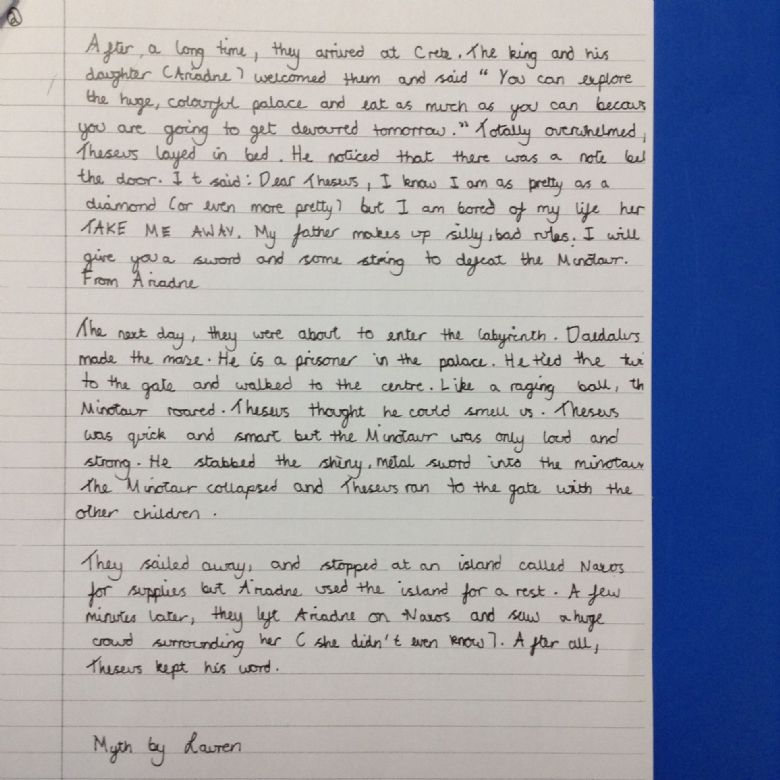 2
After a long time, they arrived at Crete. The king and his
daughter (Ariadne) welcomed them and said "You can explore
the huge, colourful palace and eat as much as you can becaus
you are going to get devoured tomorrow." Totally overwhelmed,
Theseus layed in bed. He noticed that there was a note bel
the door. It said: Dear Theseus, I know I am as pretty as a
diamond (or even more pretty) but I am bored of my life her
TAKE ME AWAY. My father makes up silly, bad rules. I will
give you a sword and some string to defeat the Minotaur.
From Ariadne
The next day, they were about to enter the labyrinth. Daedalus
made the maze. He is a prisoner in the palace. He tied the twi
to the gate and walked to the centre. Like a raging ball, th
Minotaur roared. Theseus thought he could smell us. Theseus
was quick and smart but the Minotaur was only loud and
strong. He stabbed the shiny, metal sword into the minotaur
The Minotaur collapsed and Theseus ran to the gate with the
other children.
They sailed away, and stopped at an island called Naxos
for supplies but Ariadne used the island for a rest. A few
minutes later, they left Ariadne on Naxos and saw a huge
crowd surrounding her (she didn't even know). After all,
Theseus kept his word.
Myth by Lauren